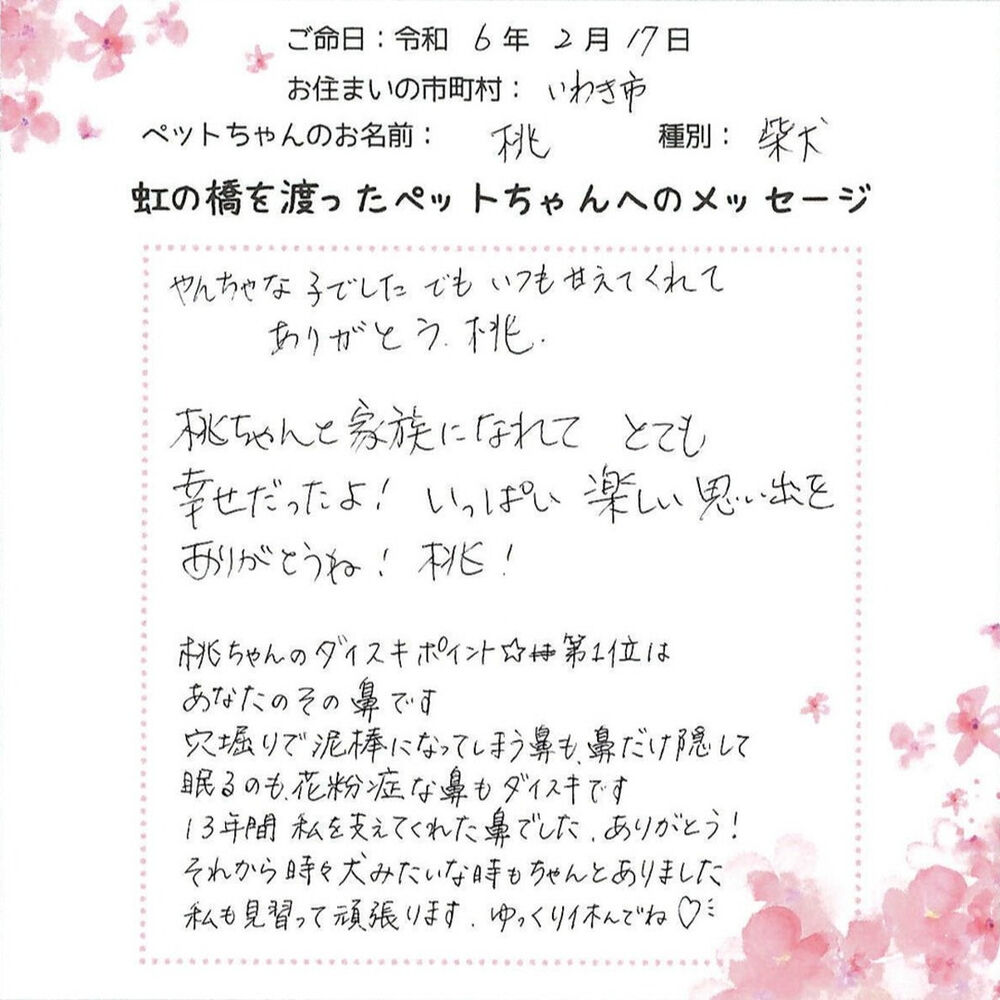 ご命日：令和 6 年 2 月 17 日
お住まいの市町村： いわき市
ペットちゃんのお名前： 桃 種別： 柴犬
虹の橋を渡ったペットちゃんへのメッセージ
やんちゃな子でした でも いつも甘えてくれて
ありがとう.桃.
桃ちゃんと家族になれて とても
幸せだったよ! いっぱい 楽しい思い出を
ありがとうね! 桃!
桃ちゃんのダイスキポイント☆第1位は
あなたのその鼻です
穴堀りで泥棒になってしまう鼻も、鼻だけ隠して
眠るのも、花粉症な鼻もダイスキです
13年間 私を支えてくれた鼻でした、ありがとう!
それから時々犬みたいな時もちゃんとありました
私も見習って頑張ります. ゆっくり休んでね♡